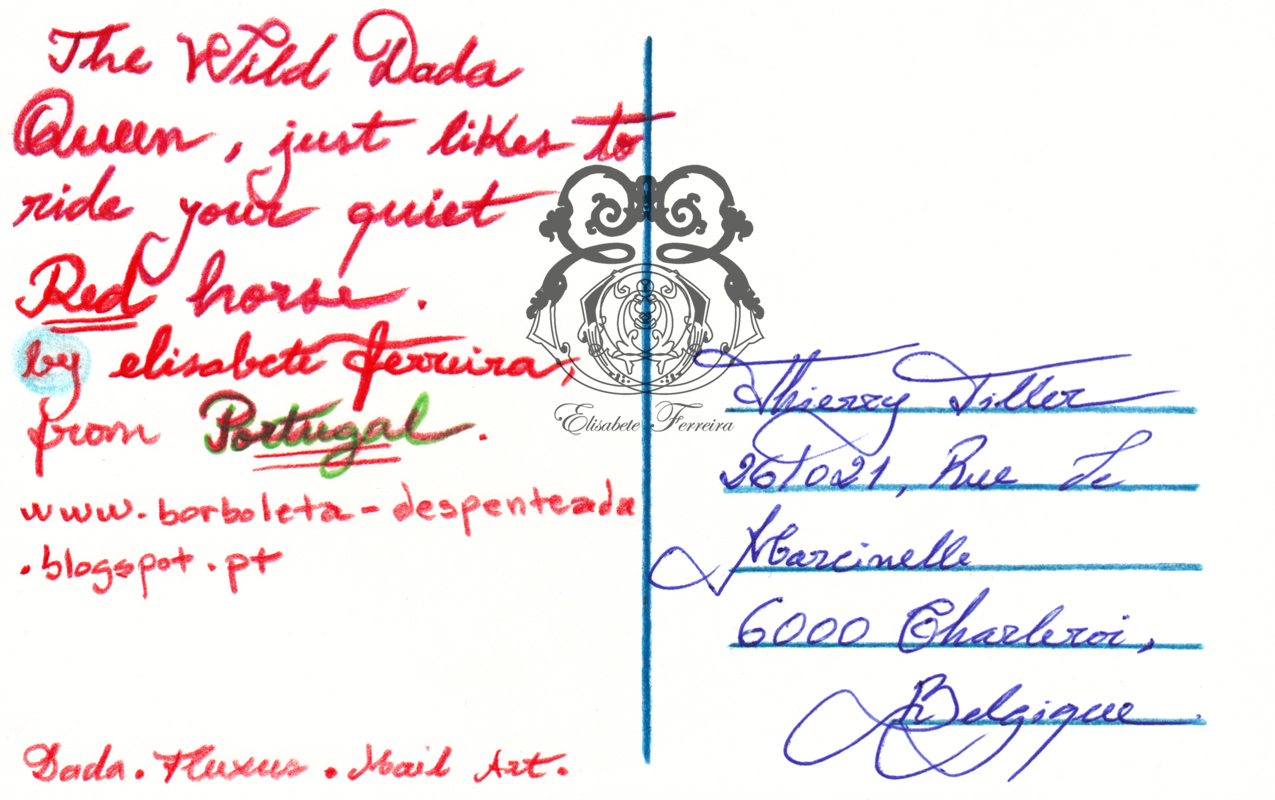 The Wild Dada
Queen, just likes to
ride your quiet
Red horse.
by elisabete ferreira,
from Portugal.
www.borboleta-despenteada
.blogspot.pt
Dada. Fluxus. Mail Art.
Elisabete Ferreira
Thierry Tiller
26/021, Rue de
Marcinelle
6000 Charleroi,
Belgique.